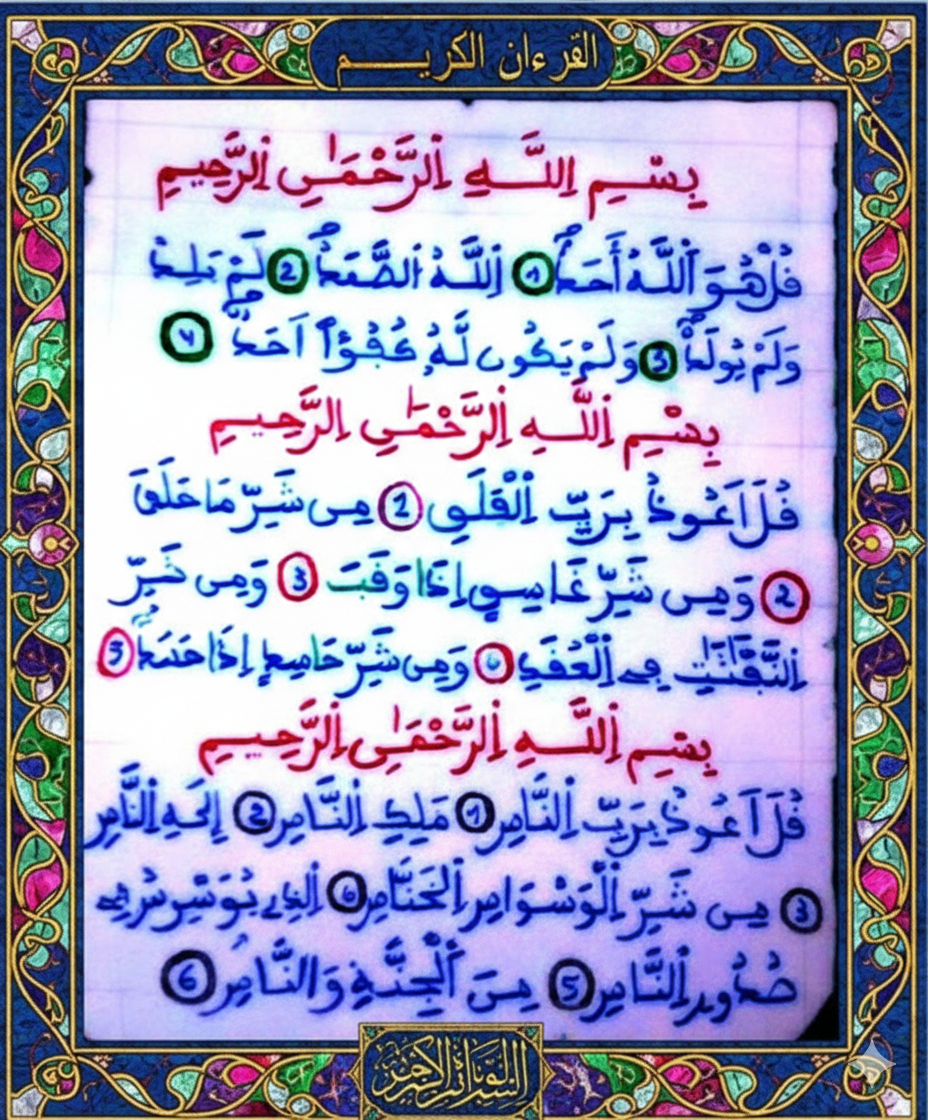 القرءان الكريم
بِسْمِ اِللَّهِ اِلرَّحْمَٰنِ اِلرَّحِيمِ
قُلْ هُوَ اَللَّهُ أَحَدٌ 1 اِللَّهُ اُلصَّمَدُ 2 لَمْ يَلِدْ
وَلَمْ يُولَدْ 3 وَلَمْ يَكُون لَّهُ كُفُؤاً اَحَدٌ 4
بِسْمِ اِللَّهِ اِلرَّحْمَٰنِ اِلرَّحِيمِ
قُلَ اَعُوذُ بِرَبِّ اِلْفَلَقِ 1 مِن شَرِّ مَا خَلَقَ
2 وَمِن شَرِّ غَاسِقٍ اِذَا وَقَبَ 3 وَمِن شَرِّ
اِلنَّفَّٰثَٰتِ فِي اِلْعُقَدِ 4 وَمِن شَرِّ حَاسِدٍ اِذَا حَسَدَ 5
بِسْمِ اِللَّهِ اِلرَّحْمَٰنِ اِلرَّحِيمِ
قُلَ اَعُوذُ بِرَبِّ اِلنَّاسِ 1 مَلِكِ اِلنَّاسِ 2 إِلَٰهِ اِلنَّاسِ
3 مِن شَرِّ اِلْوَسْوَاسِ اِلْخَنَّاسِ 4 اِلذِي يُوَسْوِسُ فِي
صُدُورِ اِلنَّاسِ 5 مِنَ اَلْجِنَّةِ وَالنَّاسِ 6